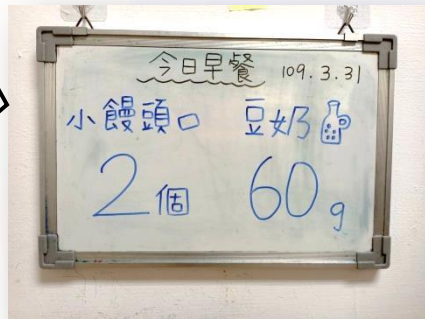 今日早餐 109.3.31
小饅頭 豆奶
2個 60g